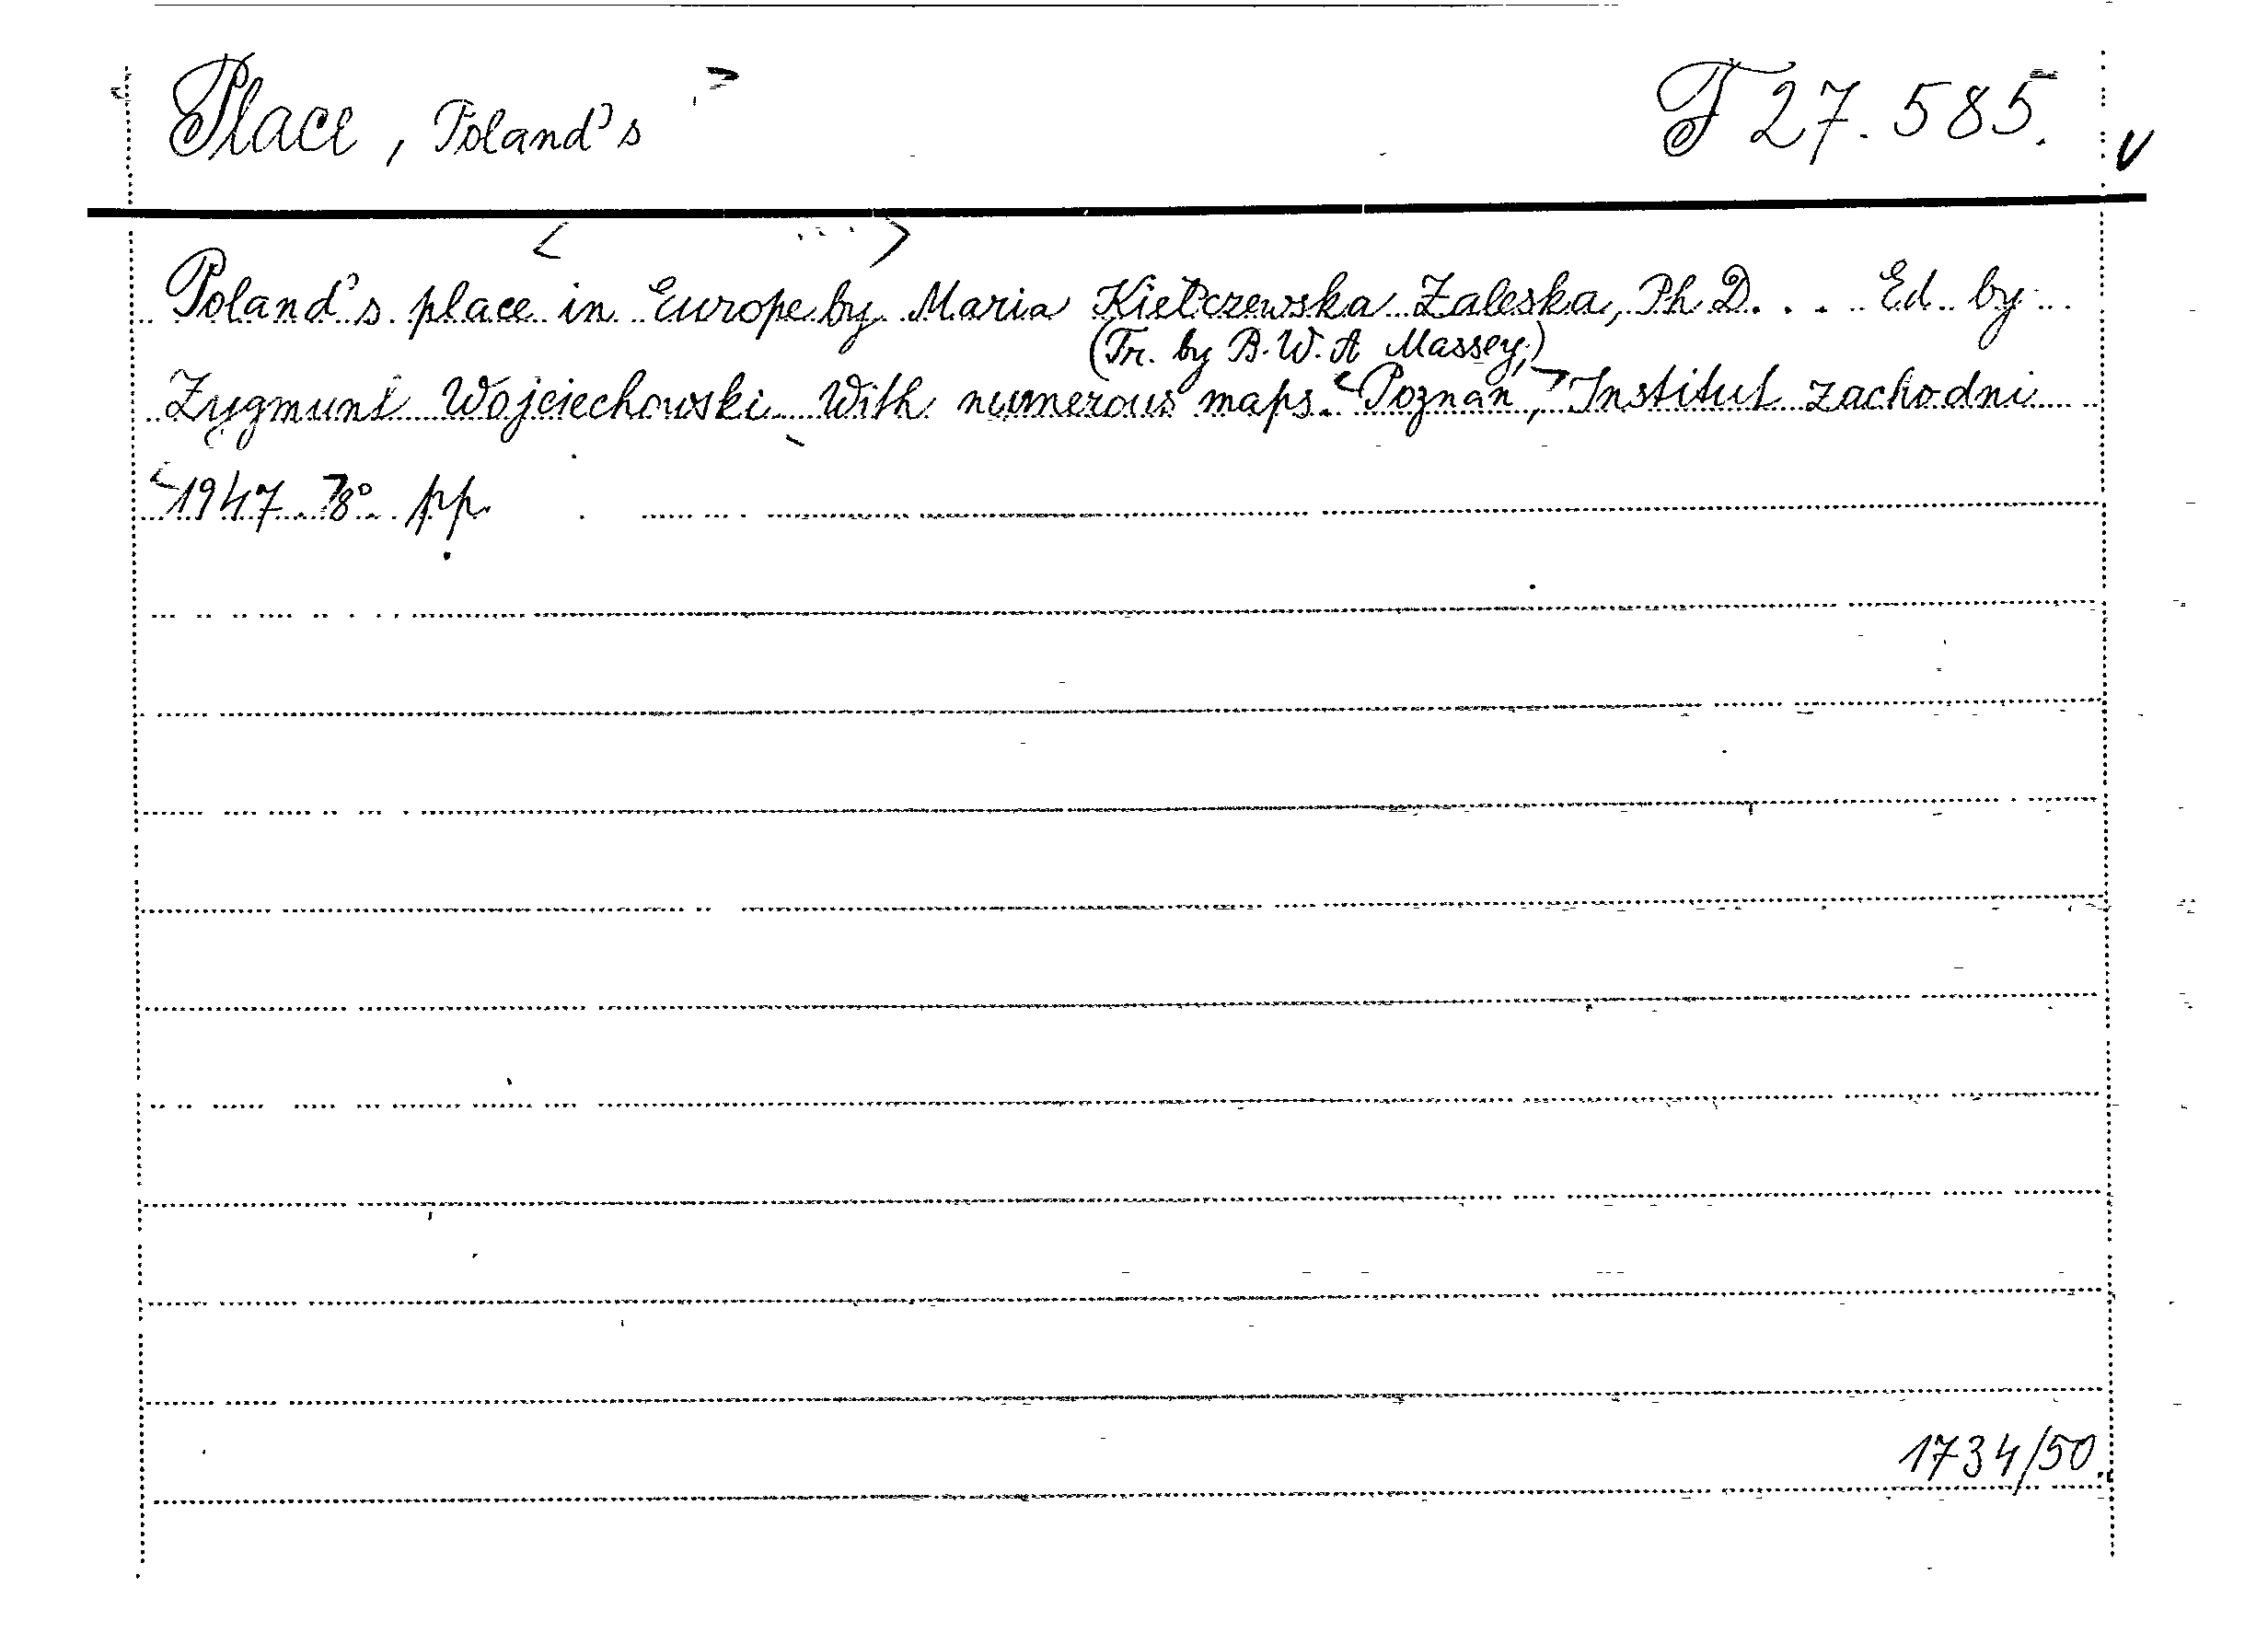 Place, Poland's F 27.585.
Poland's place in Europe by Maria Kiełczewska Zaleska, Ph D. . . Ed. by
(Tr. by B. W. A Massey,)
Zygmunt Wojciechowski With numerous maps. Poznań, Institut zachodni
1947. 8° pp.
1734/50.